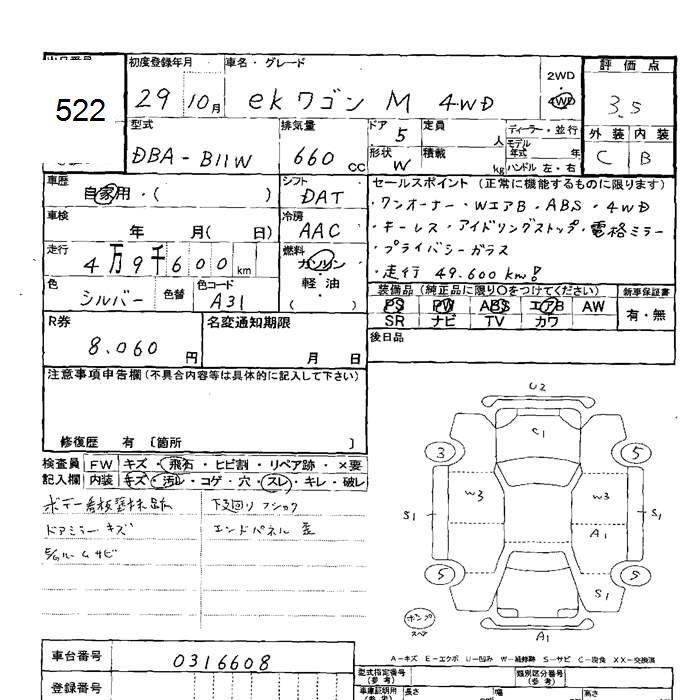 522
初度登録年月 車名・グレード 2WD 評価点
29 10月 ekワゴン M 4WD 4WD 3.5
型式 排気量 ドア 5 定員 人 ディーラー・並行 外装 内装
DBA-B11W 660CC 形状 W 積載 kg モデル年式 年 ハンドル 左・右 C B
車歴 自家用・( ) シフト DAT
セールスポイント (正常に機能するものに限ります)
・ワンオーナー・WエアB・ABS・4WD
車検 年 月( 日) 冷房 AAC
・キーレス・アイドリングストップ・電格ミラー
・プライバシーガラス
走行 4万9千600km 燃料 ガソリン・軽油 ( )
・走行 49.600km!
色 シルバー 色替 色コード A31
装備品 (純正品に限り〇をつけてください) 新車保証書
PS PW ABS エアB AW 有・無
SR ナビ TV カワ
R券 8.060円 名変通知期限 月 日
後日品
注意事項申告欄 (不具合内容等は具体的に記入して下さい)
修復歴 有 〔箇所 〕
検査員 FW キズ・飛石・ヒビ割・リペア跡・×要
記入欄 内装 キズ・汚レ・コゲ・穴・スレ・キレ・破レ
下廻りフショク
ドアミラーキズ エンドパネル 歪
ルームサビ
U2
C1
3 5
W3 W3
S1 S1
A1
5 5
S1
A1
スペア
A-キズ E-エクボ U-凹み W-補修跡 S-サビ C-腐食 XX-交換済
車台番号 0316608
登録番号
型式指定番号 (参考) 類別区分番号 (参考)
車庫証明用 (参考) 長さ 幅 高さ